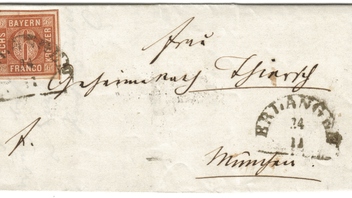 BAYERN
SECHS KREUZER
FRANCO
Frau
Geheimerath Thiersch
ERLANGEN
24
11
München